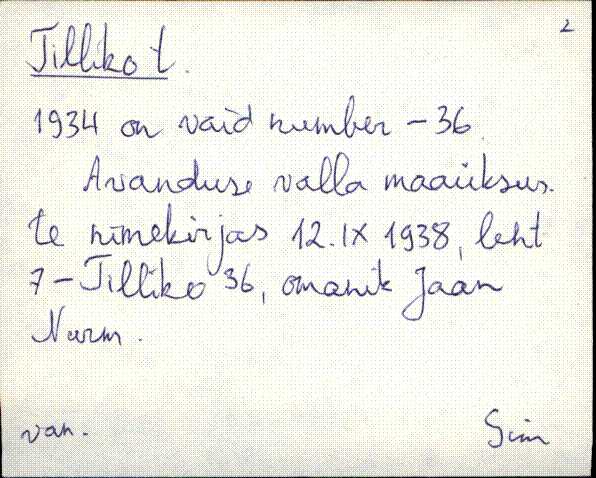 2
Tilliko t.
1934 on vaid number - 36.
Avanduse valla maaüksus.
te nimekirjas 12.IX 1938, leht
7 - Tilliko 36, omanik Jaan
Nurm.
van. Sim